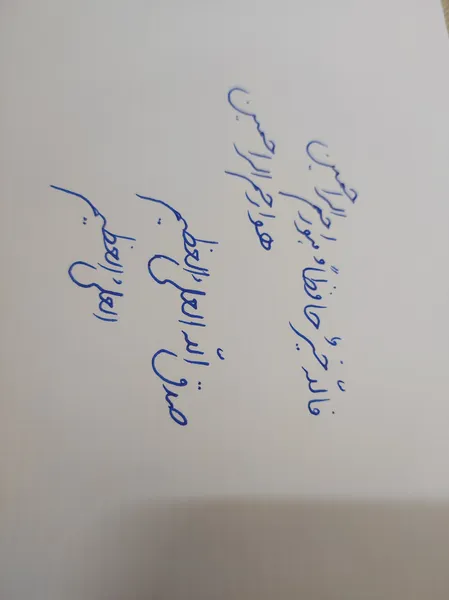 فاللّه خیرٌ حافظاً و هو ارحم الراحمین
هو ارحم الراحمین
صدق اللّه العلی العظیم
العلی العظیم